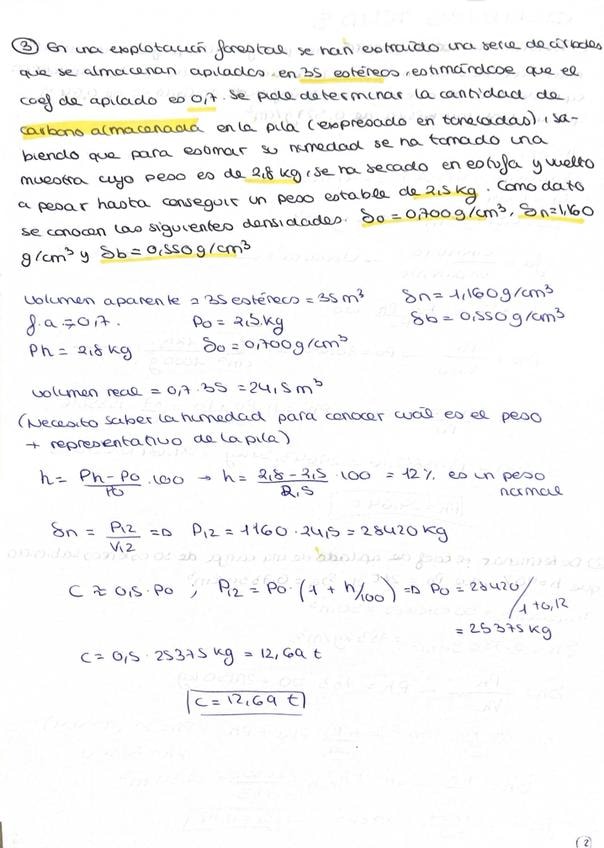 ③ En una explotación forestal se han extraído una serie de árboles
que se almacenan apilados en 35 estéreos, estimándose que el
coef de apilado es 0,7. Se pide determinar la cantidad de
carbono almacenada en la pila (expresado en toneladas), sa-
biendo que para estimar su humedad se ha tomado una
muestra cuyo peso es de 2,8 kg, se ha secado en estufa y vuelto
a pesar hasta conseguir un peso estable de 2,5 kg. Como dato
se conocen las siguientes densidades. δo = 0,700 g/cm³, δn = 1,160
g/cm³ y δb = 0,550 g/cm³
Volumen aparente = 35 estéreos = 35 m³ δn = 1,160 g/cm³
f.a = 0,7. Po = 2,5 kg δb = 0,550 g/cm³
Ph = 2,8 kg δo = 0,700 g/cm³
Volumen real = 0,7 · 35 = 24,5 m³
(Necesito saber la humedad para conocer cuál es el peso
+ representativo de la pila)
h = Ph - Po / Po · 100 → h = 2,8 - 2,5 / 2,5 · 100 = 12% es un peso
normal
δn = P12 / V12 => P12 = 1160 · 24,5 = 28420 kg
C ≈ 0,5 · Po ; P12 = Po · (1 + h/100) => Po = 28420 / 1 + 0,12
= 25375 kg
C = 0,5 · 25375 kg = 12,69 t
C = 12,69 t
(2)